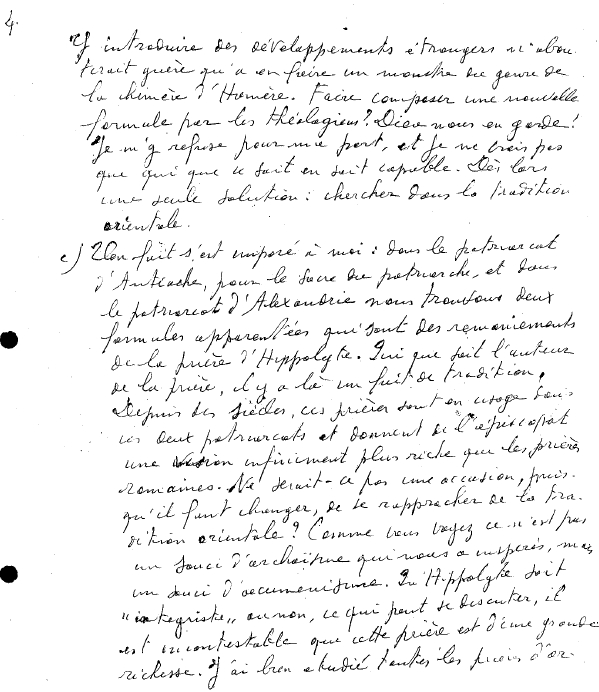 4.
Y introduire des développements étrangers n'abou-
tirait guère qu'à en faire un monstre du genre de
la chimère d'Homère. Faire composer une nouvelle
formule par les théologiens? Dieu nous en garde!
Je m'y refuse pour ma part, et je ne crois pas
que qui que ce soit en soit capable. Dès lors
une seule solution: chercher dans la tradition
orientale.
c) Un fait s'est imposé à moi: dans le patriarcat
d'Antioche, pour le sacre du patriarche, et dans
le patriarcat d'Alexandrie nous trouvons deux
formules apparentées qui sont des remaniements
de la prière d'Hippolyte. Qui que soit l'auteur
de la prière, il y a là un fait de tradition.
Depuis des siècles, ces prières sont en usage dans
ces deux patriarcats et donnent de l'épiscopat
une vision infiniment plus riche que les prières
romaines. Ne serait-ce pas une occasion, puis-
qu'il faut changer, de se rapprocher de la tra-
dition orientale? Comme vous voyez ce n'est pas
un souci d'archaïsme qui nous a inspirés, mais
un souci d'oecumenisme. Qu'Hippolyte soit
"intégriste" ou non, ce qui peut se discuter, il
est incontestable que cette prière est d'une grande
richesse. J'ai bien étudié toutes les prières d'or-